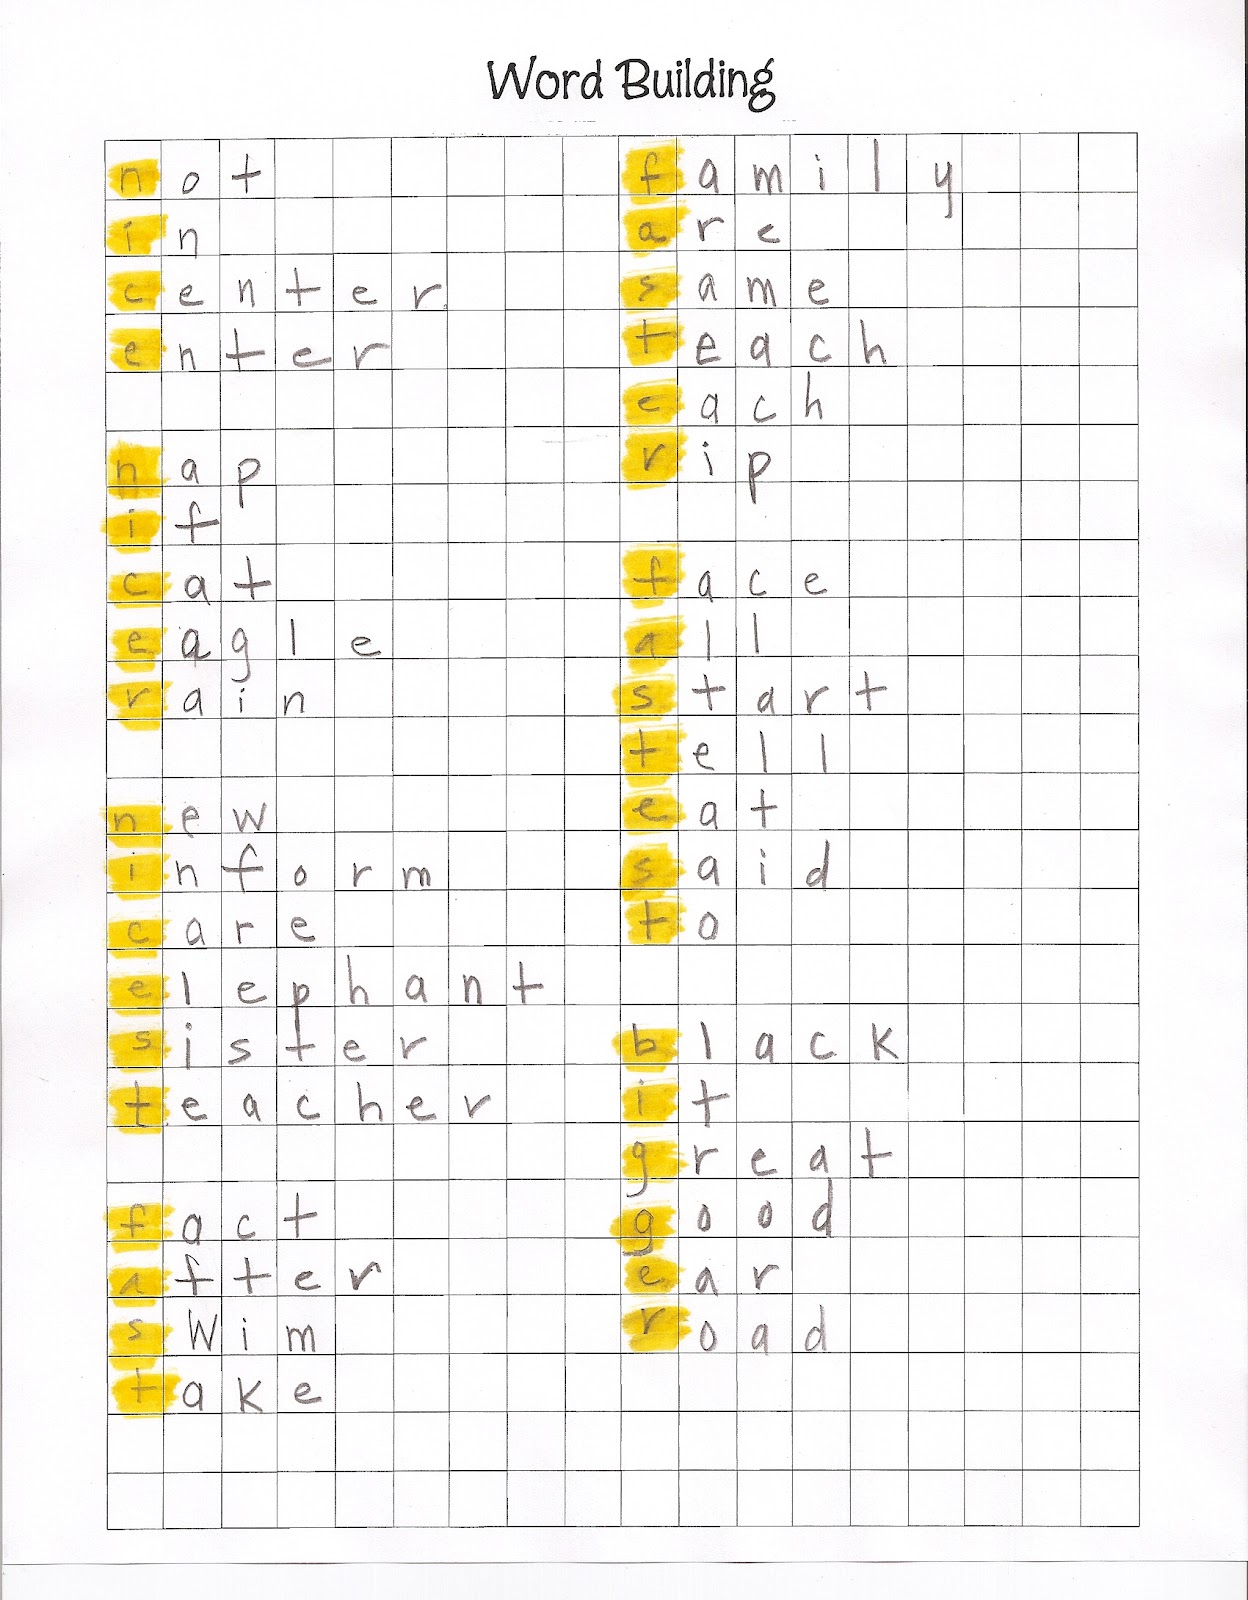 Word Building
not
in
center
enter
nap
if
cat
eagle
rain
new
inform
care
elephant
sister
teacher
fact
after
swim
take
family
are
same
teach
each
rip
face
all
start
tell
eat
said
to
black
it
great
good
ear
road